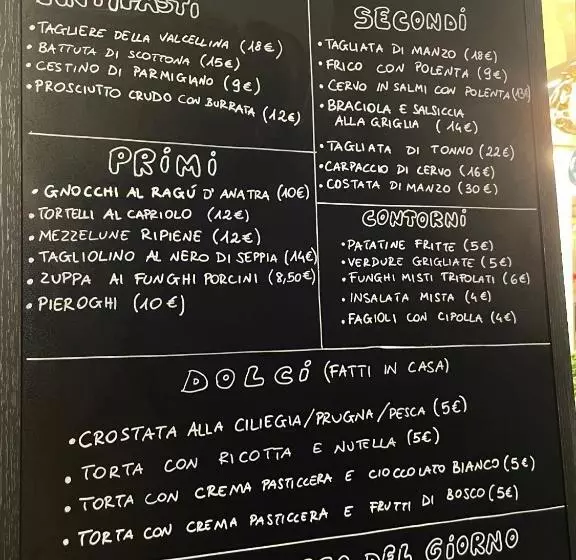 ANTIPASTI
•TAGLIERE DELLA VALCELLINA (18€)
•BATTUTA DI SCOTTONA (15€)
•CESTINO DI PARMIGIANO (9€)
•PROSCIUTTO CRUDO CON BURRATA (12€)
PRIMI
•GNOCCHI AL RAGÚ D'ANATRA (10€)
•TORTELLI AL CAPRIOLO (12€)
•MEZZELUNE RIPIENE (12€)
•TAGLIOLINO AL NERO DI SEPPIA (14€)
•ZUPPA AI FUNGHI PORCINI (8,50€)
•PIEROGHI (10€)
SECONDI
•TAGLIATA DI MANZO (18€)
•FRICO CON POLENTA (9€)
•CERVO IN SALMI CON POLENTA
•BRACIOLA E SALSICCIA
ALLA GRIGLIA (14€)
•TAGLIATA DI TONNO (22€)
•CARPACCIO DI CERVO (16€)
•COSTATA DI MANZO (30€)
CONTORNI
•PATATINE FRITTE (5€)
•VERDURE GRIGLIATE (5€)
•FUNGHI MISTI TRIFOLATI (6€)
•INSALATA MISTA (4€)
•FAGIOLI CON CIPOLLA (4€)
DOLCI (FATTI IN CASA)
•CROSTATA ALLA CILIEGIA/PRUGNA/PESCA (5€)
•TORTA CON RICOTTA E NUTELLA (5€)
•TORTA CON CREMA PASTICCERA E CIOCCOLATO BIANCO (5€)
•TORTA CON CREMA PASTICCERA E FRUTTI DI BOSCO (5€)
DEL GIORNO